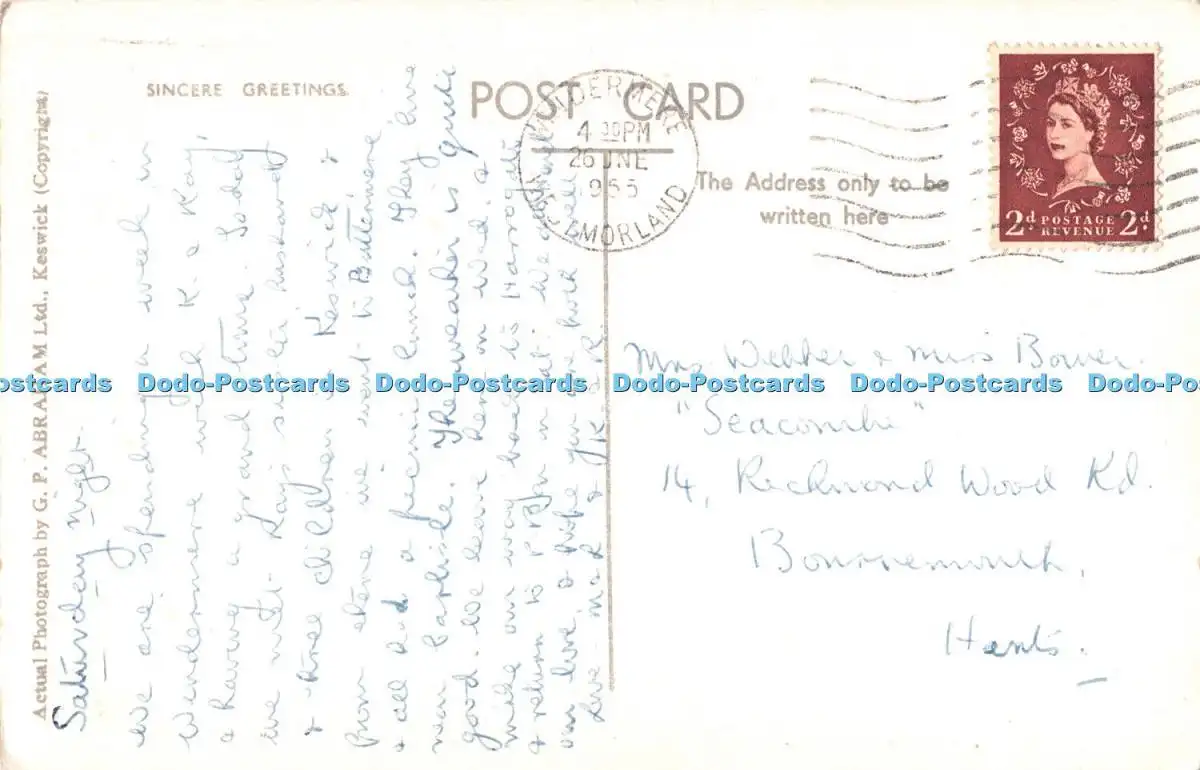 SINCERE GREETINGS
POST CARD
The Address only to be
written here
WINDERMERE
4 30PM
26 JNE
1955
WESTMORLAND
2d POSTAGE 2d
REVENUE
Actual Photograph by G. P. ABRAHAM Ltd., Keswick (Copyright)
Saturday night.
We are spending a week in
Windermere with K. & Kay
& having a grand time. Today
we met Kay's sister husband
& three children at Keswick &
from there we went to Buttermere
& all had a picnic lunch. They live
near Carlisle. The weather is quite
good. We leave here on Wed. &
make our way back to Harrogate
& return to on Sat. We all send
our love & hope you are both well
Love & R.
Mrs Webber & Miss Bower.
"Seacombe"
14, Richmond Wood Rd.
Bournemouth,
Hants.
Dodo-Postcards Dodo-Postcards Dodo-Postcards Dodo-Postcards Dodo-Postcards Dodo-Postcards